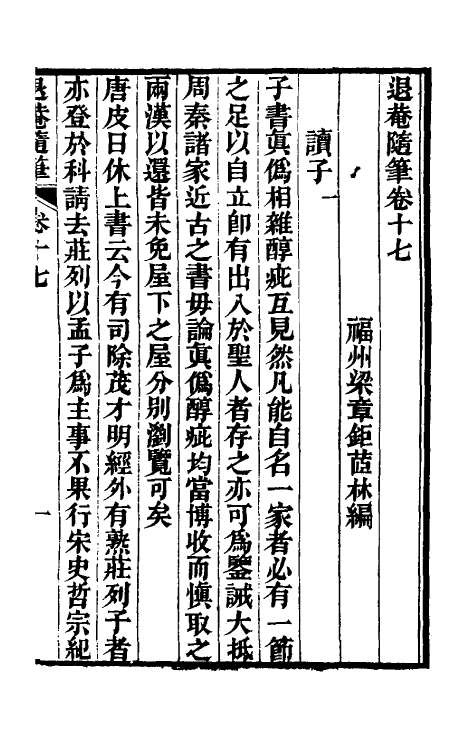 退菴隨筆卷十七
福州梁章鉅茝林編
讀子一
子書眞僞相雜醇疵互見然凡能自名一家者必有一節
之足以自立卽有出入於聖人者存之亦可爲鑒誡大抵
周秦諸家近古之書毋論眞僞醇疵均當博收而愼取之
兩漢以還皆未免屋下之屋分別瀏覽可矣
唐皮日休上書云今有司除茂才明經外有熟莊列子者
亦登於科請去莊列以孟子爲主事不果行宋史哲宗紀
退菴隨筆 卷十七 一